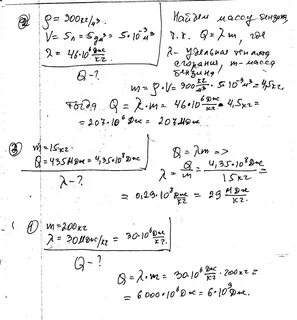 ② ρ = 900 кг/м³.
V = 5л = 5 дм³ = 5·10⁻³ м³
λ = 46·10⁶ Дж/кг
Q - ?
Найдем массу бензина,
т.к. Q = λm, где
λ - удельная теплота
сгорания, m - масса
бензина.
m = ρ·V = 900 кг/м³ · 5·10⁻³ м³ = 4,5 кг
Тогда Q = λ·m = 46·10⁶ Дж/кг · 4,5 кг =
= 207·10⁶ Дж = 207 МДж
③ m = 15 кг
Q = 435 МДж = 4,35·10⁸ Дж
λ - ?
Q = λm =>
λ = Q/m = 4,35·10⁸ Дж / 15 кг =
= 0,29·10⁸ Дж/кг = 29 МДж/кг
① m = 200 кг
λ = 30 МДж/кг = 30·10⁶ Дж/кг
Q - ?
Q = λ·m = 30·10⁶ Дж/кг · 200 кг =
= 6000·10⁶ Дж = 6·10⁹ Дж.